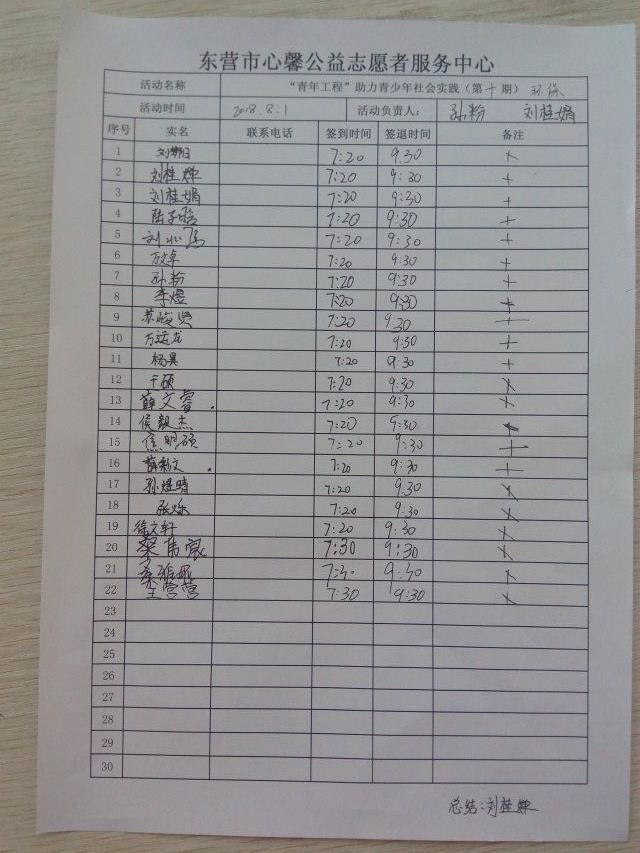 东营市心馨公益志愿者服务中心
活动名称 “青年工程”助力青少年社会实践（第十期）环保
活动时间 2018.8.1 活动负责人： 孙粉 刘桂娟
序号 实名 联系电话 签到时间 签退时间 备注
1 7:20 9:30
2 刘桂婵 7:20 9:30 +
3 刘桂娟 7:20 9:30 +
4 陆子晗 7:20 9:30 +
5 刘 7:20 9:30 +
6 7:20 9:30 +
7 孙粉 7:20 9:30 +
8 李煜 7:20 9:30 +
9 苏峻贤 7:20 9:30 +
10 万运龙 7:20 9:30 +
11 杨昊 7:20 9:30 +
12 于硕 7:20 9:30
13 薛文睿 7:20 9:30
14 侯毅杰 7:20 9:30
15 侯明硕 7:20 9:30 +
16 薛 文 7:20 9:30 +
17 孙煜晴 7:20 9:30
18 张烁 7:20 9:30
19 徐文轩 7:20 9:30
20 7:30 9:30
21 7:30 9:30
22 王营营 7:30 9:30
23
24
25
26
27
28
29
30
总结：刘桂婵